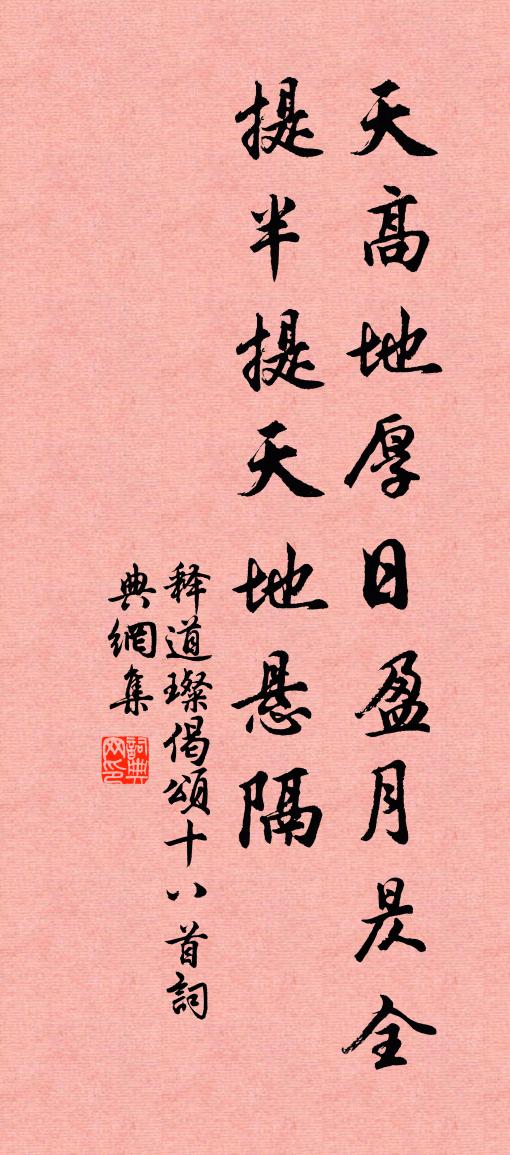 天高地厚日盈月昃全
提半提天地悬隔
释道璨偈頌十八首詞
典網集
詞典網印